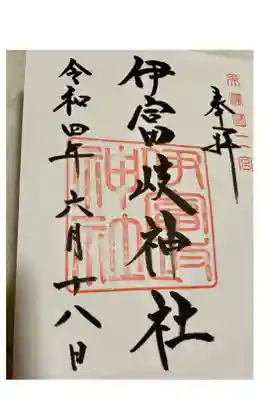 奉拝
美濃國二宮
伊富岐神社
伊富岐神社
令和四年六月十八日